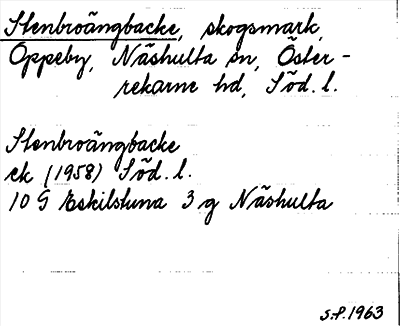 Stenbroängbacke, skogsmark,
Öppeby, Näshulta sn, Öster-
rekarne hd, Söd. l.
Stenbroängbacke
ek (1958) Söd. l.
10 G Eskilstuna 3 g Näshulta
S.P. 1963